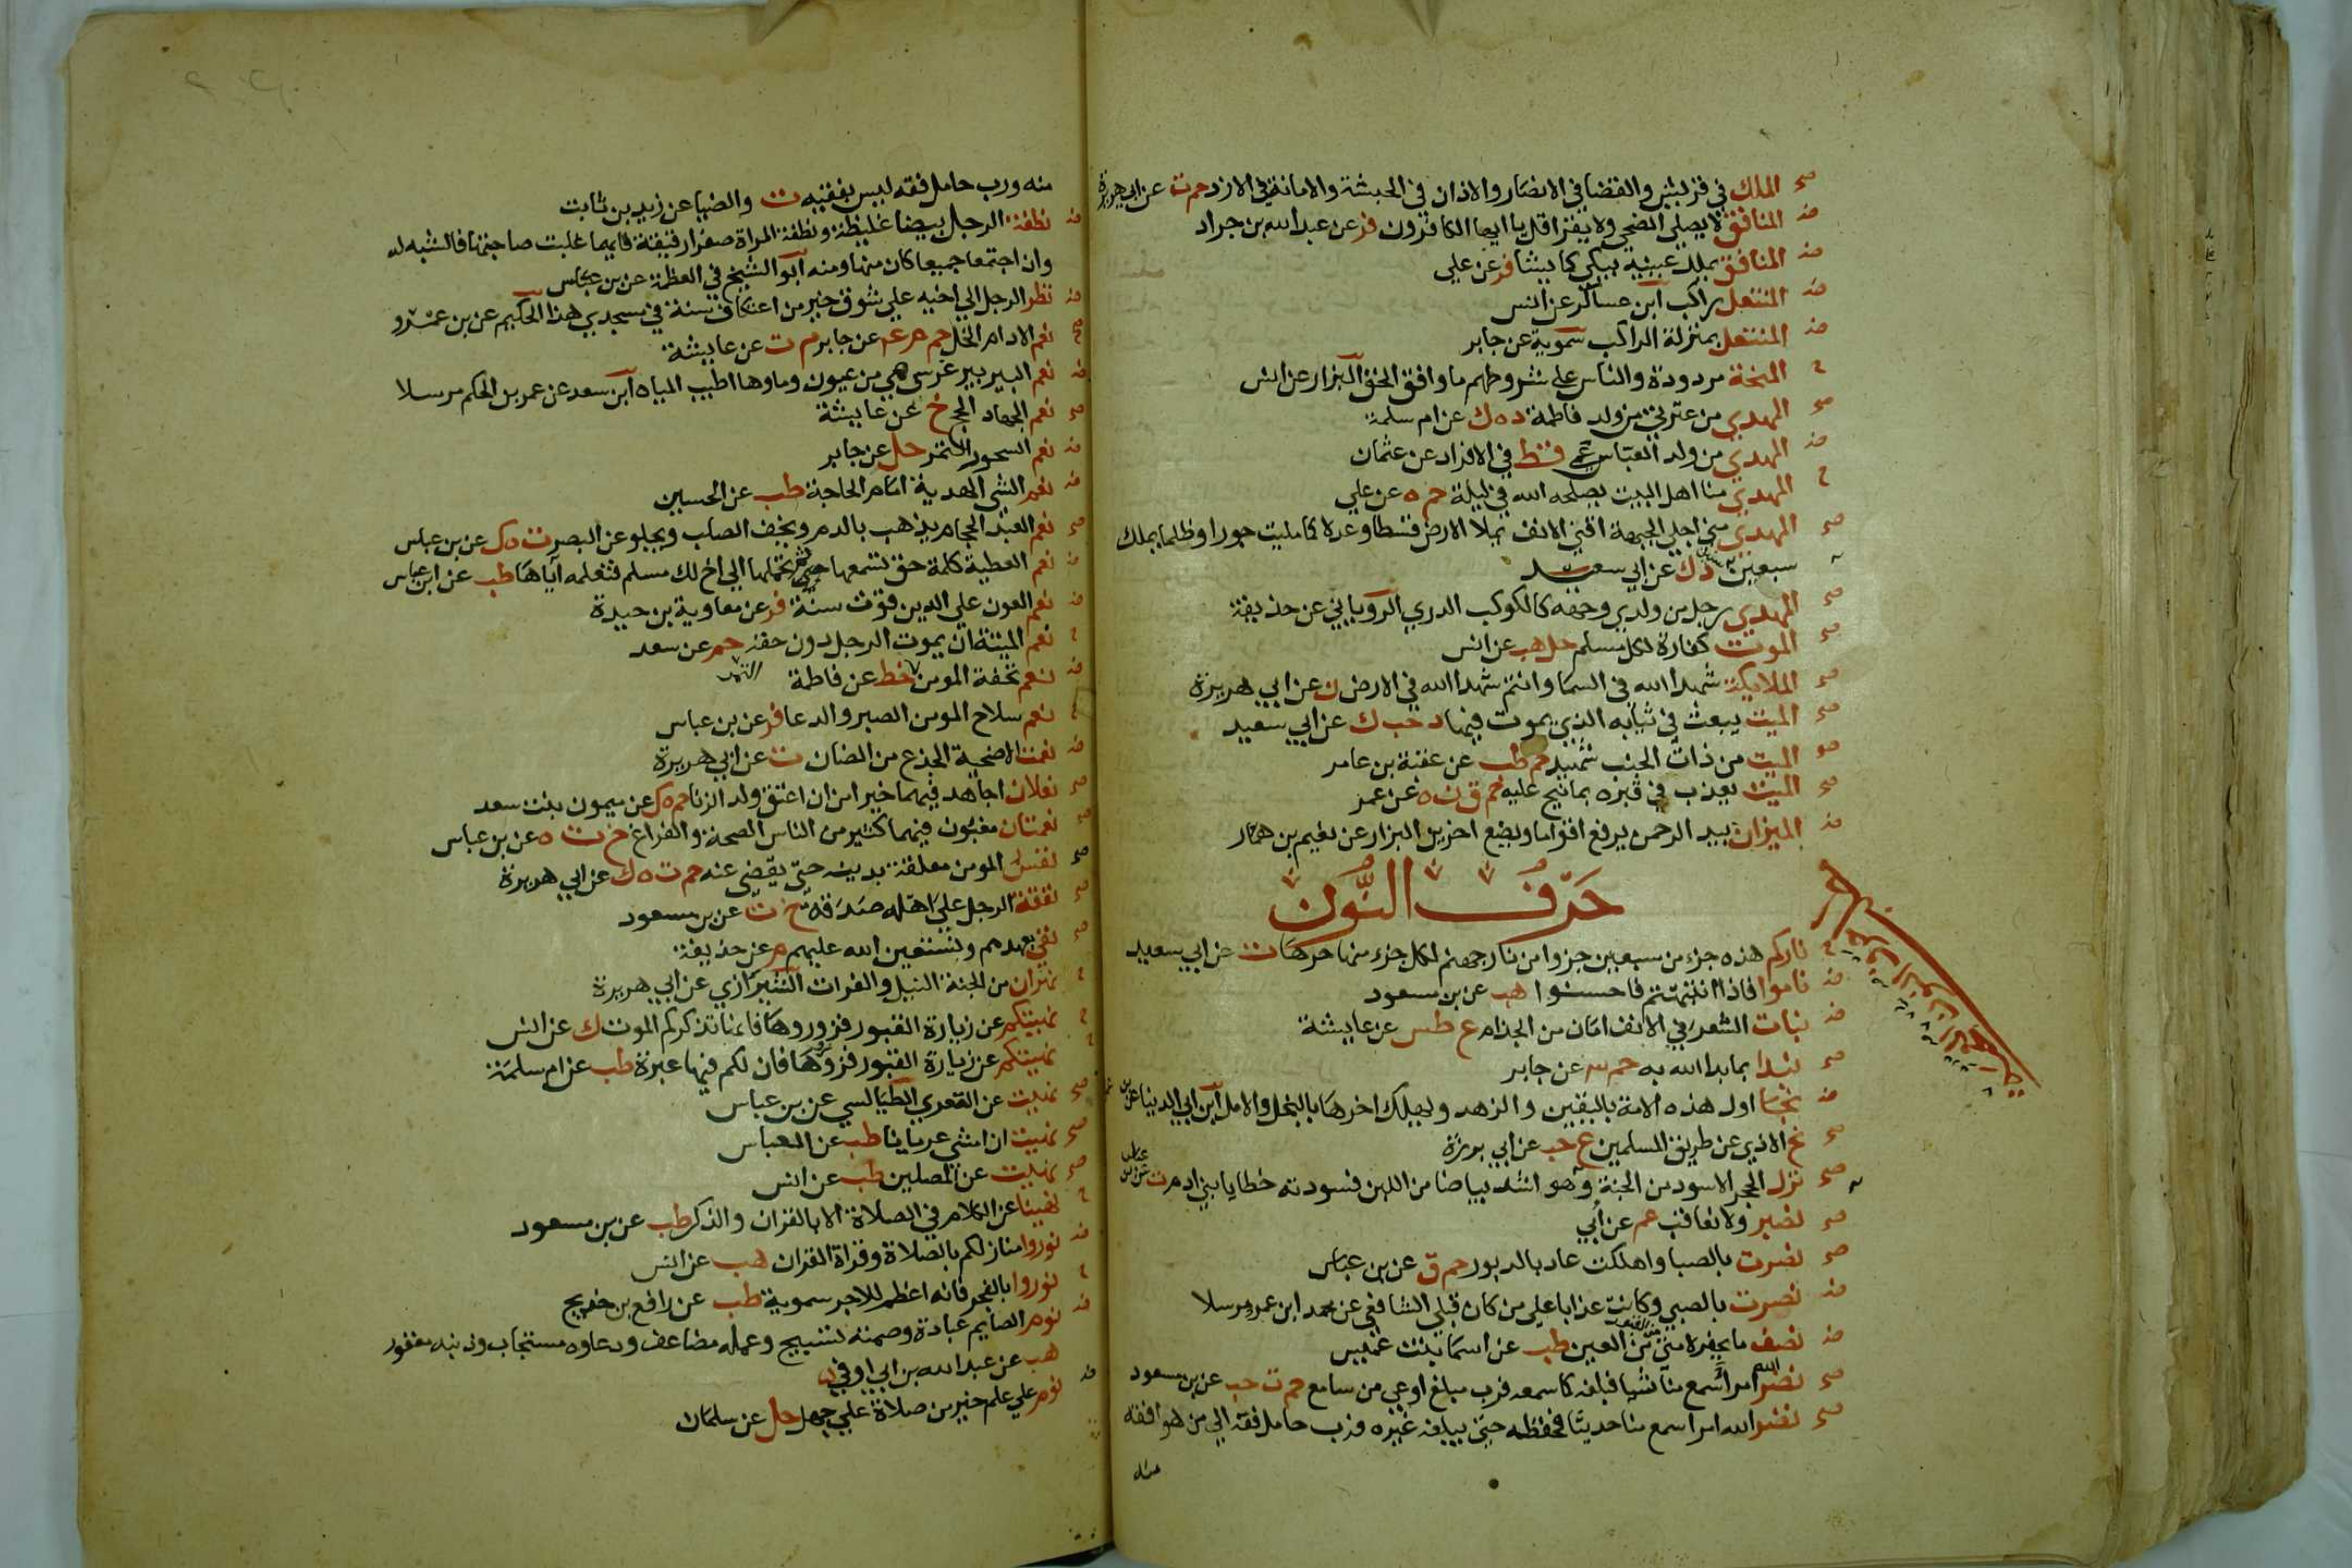 صح الملك في قريش والقضا في الانصار والاذان في الحبشة والامانة في الازد حم ت عن ابي هريرة
ض المنافق لا يصلي الضحي ولا يقرا قل يا ايها الكافرون فر عن عبد الله بن جراد
ض المنافق يملك عينيه يبكي كما يشا فر عن علي
ض المنتعل راكب ابن عساكر عن انس
ض المنتعل بمنزلة الراكب سموية عن جابر
ح المنحة مردودة والناس على شروطهم ما وافق الحق البزار عن انس
صح المهدي من عترتي من ولد فاطمة د ه ك عن ام سلمة
ض المهدي من ولد العباس عمي قط في الافراد عن عثمان
ح المهدي منا اهل البيت يصلحه الله في ليلة حم ه عن علي
صح المهدي مني اجلي الجبهة اقني الانف يملا الارض قسطا وعدلا كما مليت جورا وظلما يملك
سبع سنين د ك عن ابي سعيد
صح المهدي رجل من ولدي وجهه كالكوكب الدري الروياني عن حذيفة
صح الموت كفارة لكل مسلم حل هب عن انس
صح الملايكة شهدا الله في السما وانتم شهدا الله في الارض ن عن ابي هريرة
صح الميت يبعث في ثيابه الذي يموت فيها د حب ك عن ابي سعيد
صح الميت من ذات الجنب شهيد حم طب عن عقبة بن عامر
صح الميت يعذب في قبره بما نيح عليه حم ق ن ه عن عمر
ض الميزان بيد الرحمن يرفع اقواما ويضع اخرين البزار عن نعيم بن همار
حَرْفُ النُّونَ
ح ناركم هذه جزء من سبعين جزوا من نار جهنم لكل جزء منها حرها ت عن ابي سعيد
ض ناموا فاذا انتبهتم فاحسنوا هب عن بن مسعود
ض نبات الشعر في الانف امان من الجذام ع طس عن عايشة
صح نبدا بما بدا الله به حم عن جابر
ض نجا اول هذه الامة باليقين والزهد ويهلك اخرها بالبخل والامل ابن ابي الدنيا عن
صح نح الاذي عن طريق المسلمين ع حب عن ابي برزة
صح نزل الحجر الاسود من الجنة وهو اشد بياضا من اللبن فسودته خطايا بني ادم ت عن بن عباس
صح نصبر ولا نعاقب عم عن أبي
صح نصرت بالصبا واهلكت عاد بالدبور حم ق عن بن عباس
ض نصرت بالصبي وكانت عذابا على من كان قبلي الشافعي عن محمد ابن عمرو مرسلا
ض نصف ما يحفر لامتي من القبور من العين طب عن اسما بنت عميس
صح نضر الله امرأ سمع منا شيا فبلغه كما سمعه فرب مبلغ اوعي من سامع حم ت حب عن بن مسعود
صح نضر الله امرا سمع منا حديثا فحفظه حتى يبلغه غيره فرب حامل فقه الى من هو افقه
منه
منه ورب حامل فقه ليس بفقيه ت والضيا عن زيد بن ثابت
ض نطفة الرجل بيضا غليظة ونطفة المراة صفرا رقيقة فايهما غلبت صاحبتها فالشبه له
وان اجتمعا جميعا كان منها ومنه ابو الشيخ في العظمة عن بن عباس
ض نظر الرجل الي اخيه علي شوق خير من اعتكاف سنة في مسجدي هذا الحكيم عن بن عمرو
صح نعم الادام الخل حم م عم عن جابر م ت عن عايشة
ض نعم البير بير غرس هي من عيون وماوها اطيب المياه ابن سعد عن عمر بن الحكم مرسلا
صح نعم الجهاد الحج خ عن عايشة
ض نعم السحور التمر حل عن جابر
ض نعم الشي الهدية امام الحاجة طب عن الحسين
صح نعم العبد الحجام يذهب بالدم ويخف الصلب ويجلو عن البصر ت ه ك عن بن عباس
ض نعم العطية كلمة حق تسمعها ثم تحملها الي اخ لك مسلم فتعلمه اياها طب عن ابن عباس
ض نعم العون علي الدين قوت سنة فر عن معاوية بن حيدة
ح نعم الميتة ان يموت الرجل دون حقه حم عن سعد
ض نعم تحفة المومن التمر خط عن فاطمة
ح نعم سلاح المومن الصبر والدعا فر عن بن عباس
ض نعمت الاضحية الجذع من الضان ت عن ابي هريرة
صح نعلان اجاهد فيهما خير من ان اعتق ولد الزنا حم ه ك عن ميمون بنت سعد
صح نعمتان مغبون فيهما كثير من الناس الصحة والفراغ خ ت ه عن بن عباس
صح نفس المومن معلقة بدينه حتى يقضى عنه حم ت ه ك عن ابي هريرة
صح نفقة الرجل على اهله صدقة خ ت عن بن مسعود
صح نفي بعهدهم ونستعين الله عليهم م عن حذيفة
ح نهران من الجنة النيل والفرات الشيرازي عن ابي هريرة
ح نهيتكم عن زيارة القبور فزوروها فانها تذكركم الموت ك عن انس
ح نهيتكم عن زيارة القبور فزوروها فان لكم فيها عبرة طب عن ام سلمة
صح نهيت عن التعري الطيالسي عن بن عباس
صح نهيت ان امشي عريانا طب عن العباس
صح نهيت عن المصلين طب عن انس
ح نهينا عن الكلام في الصلاة الا بالقران والذكر طب عن بن مسعود
ض نوروا منازلكم بالصلاة وقراة القران هب عن انس
ح نوروا بالفجر فانه اعظم للاجر سموية طب عن رافع بن خديج
ض نوم الصايم عبادة وصمته تسبيح وعمله مضاعف ودعاوه مستجاب وذنبه مغفور
هب عن عبد الله بن ابي اوفي
ض نوم علي علم خير من صلاة علي جهل حل عن سلمان